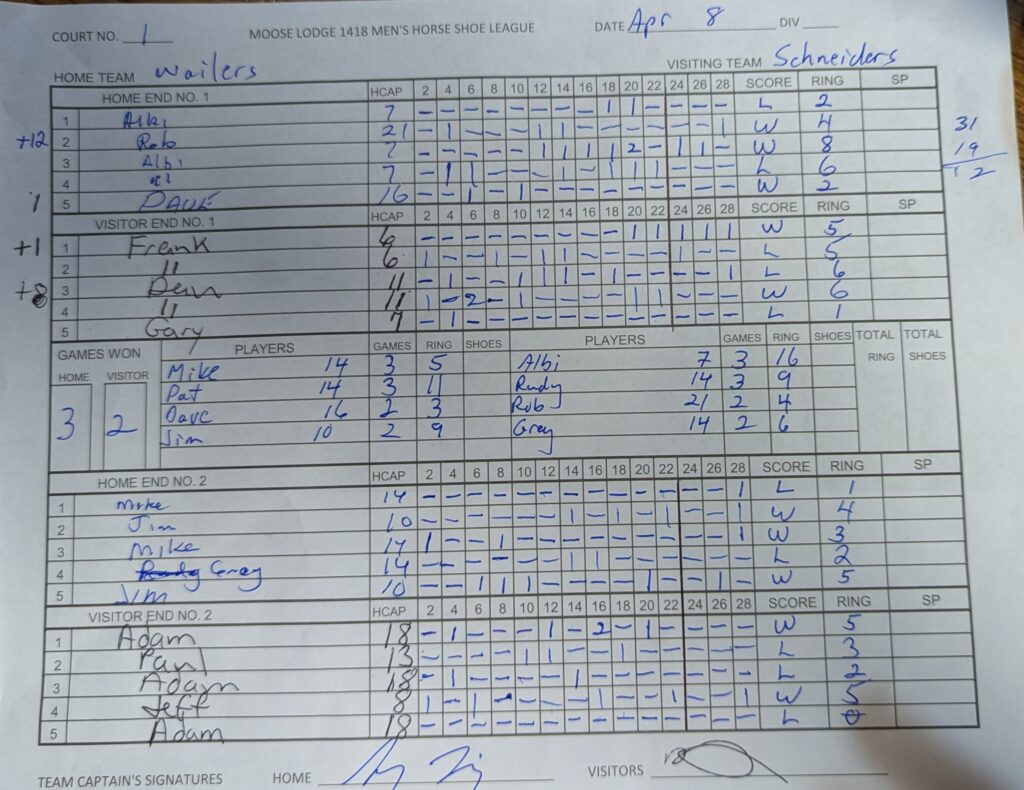 COURT NO. 1 MOOSE LODGE 1418 MEN'S HORSE SHOE LEAGUE DATE Apr 8 DIV
HOME TEAM Wailers VISITING TEAM Schneiders
HOME END NO. 1 HCAP 2 4 6 8 10 12 14 16 18 20 22 24 26 28 SCORE RING SP
1 Albi 7 – – – – – – – – 1 1 – – – – L 2
+12 2 Rob 21 – 1 – – – 1 1 – – – – – – 1 W 4 31
3 Albi 7 – – – – – 1 1 1 1 2 – 1 1 – W 8 19
4 " 7 – 1 1 – – – 1 – 1 1 1 – – – L 6 12
1 5 DAVE 16 – – 1 – 1 – – – – – – – – – W 2
VISITOR END NO. 1 HCAP 2 4 6 8 10 12 14 16 18 20 22 24 26 28 SCORE RING SP
+1 1 Frank 6 – – – – – – – – – 1 1 1 1 1 W 5
2 " 6 1 – – 1 – 1 1 – – – – 1 – – L 5
+8 3 Dean 11 – 1 – – 1 1 1 – 1 – – – – 1 L 6
4 " 11 1 – 2 – 1 – – – – 1 1 – – – W 6
5 Gary 7 – 1 – – – – – – – – – – – – L 1
GAMES WON PLAYERS GAMES RING SHOES PLAYERS GAMES RING SHOES TOTAL RING TOTAL SHOES
HOME VISITOR
Mike 14 3 5 Albi 7 3 16
Pat 14 3 11 Rudy 14 3 9
3 2 Dave 16 2 3 Rob 21 2 4
Jim 10 2 9 Greg 14 2 6
HOME END NO. 2 HCAP 2 4 6 8 10 12 14 16 18 20 22 24 26 28 SCORE RING SP
1 Mike 14 – – – – – – – – – – – – – 1 L 1
2 Jim 10 – – – – – – 1 – 1 – 1 – – 1 W 4
3 Mike 14 1 – – 1 – – – – – – – – – 1 W 3
4 Greg 14 – – – – – – 1 1 – – – – – – L 2
5 Jim 10 – – 1 1 1 – – – – 1 – – 1 – W 5
VISITOR END NO. 2 HCAP 2 4 6 8 10 12 14 16 18 20 22 24 26 28 SCORE RING SP
1 Adam 18 – 1 – – – 1 – 2 – 1 – – – – W 5
2 Paul 13 – – – – 1 1 – – 1 – – – – – L 3
3 Adam 18 – 1 – – – – 1 – – – – – – – L 2
4 Jeff 8 1 – 1 – – – – 1 – – 1 – – 1 W 5
5 Adam 18 – – – – – – – – – – – – – – L 0
TEAM CAPTAIN'S SIGNATURES HOME VISITORS